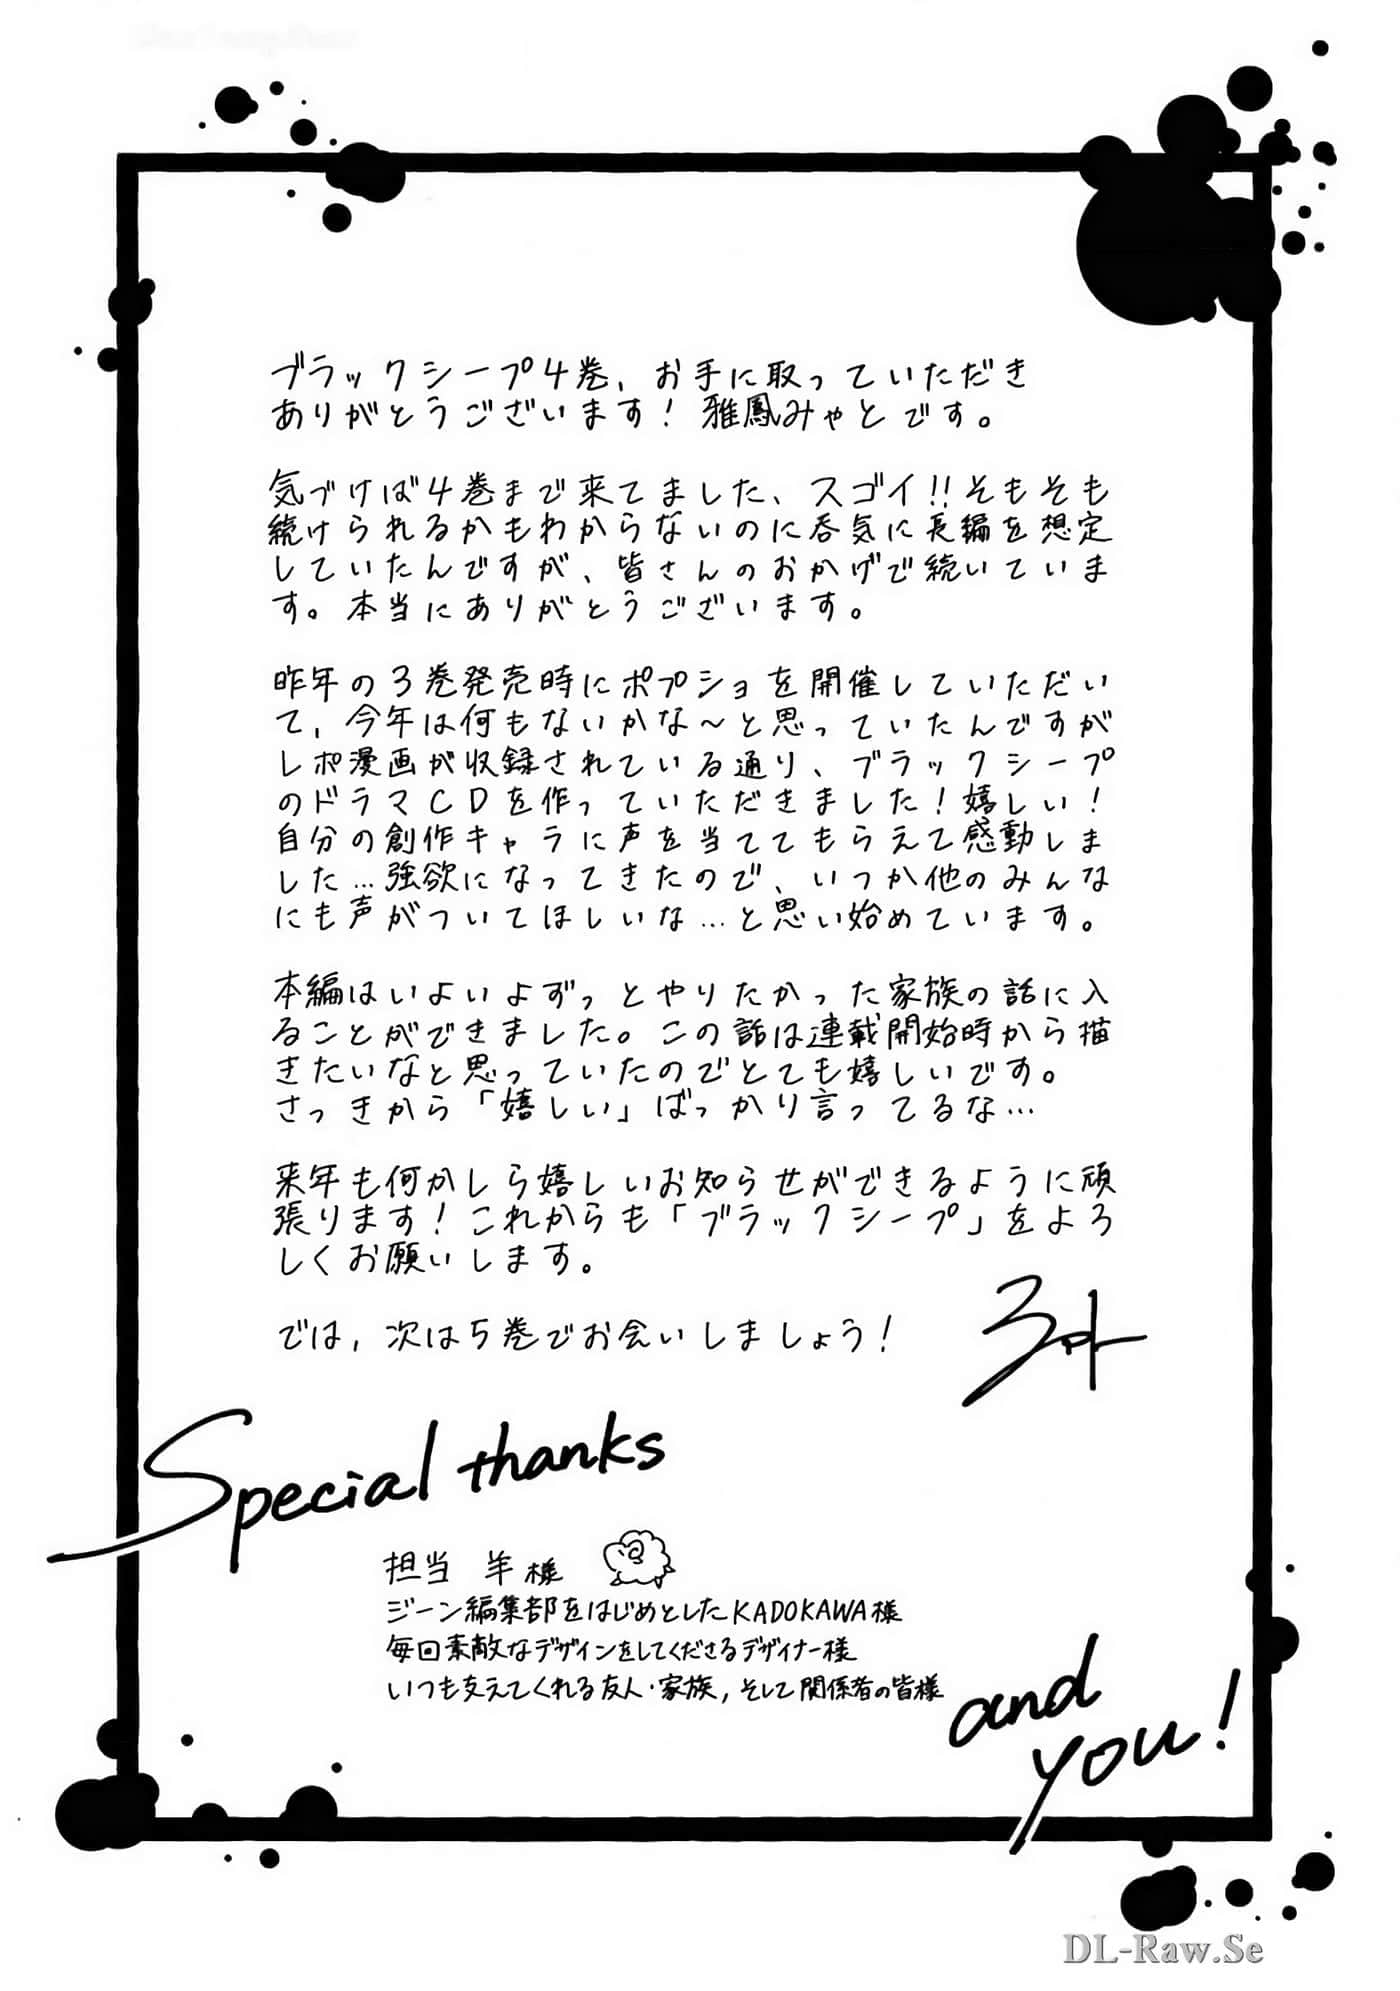 ブラックシープ4巻、お手に取っていただき
ありがとうございます！雅鳳みやとです。
気づけば4巻まで来てました、スゴイ!!そもそも
続けられるかもわからないのに呑気に長編を想定
していたんですが、皆さんのおかげで続いていま
す。本当にありがとうございます。
昨年の3巻発売時にポプショを開催していただい
て、今年は何もないかな〜と思っていたんですが
レポ漫画が収録されている通り、ブラックシープ
のドラマCDを作っていただきました！嬉しい！
自分の創作キャラに声を当ててもらえて感動しま
した…強欲になってきたので、いつか他のみんな
にも声がついてほしいな…と思い始めています。
本編はいよいよずっとやりたかった家族の話に入
ることができました。この話は連載開始時から描
きたいなと思っていたのでとても嬉しいです。
さっきから「嬉しい」ばっかり言ってるな…
来年も何かしら嬉しいお知らせができるように頑
張ります！これからも「ブラックシープ」をよろ
しくお願いします。
では、次は5巻でお会いしましょう！
Special thanks
担当 羊様
ジーン編集部をはじめとしたKADOKAWA様
毎回素敵なデザインをしてくださるデザイナー様
いつも支えてくれる友人・家族、そして関係者の皆様
and
you!
DL-Raw.Se